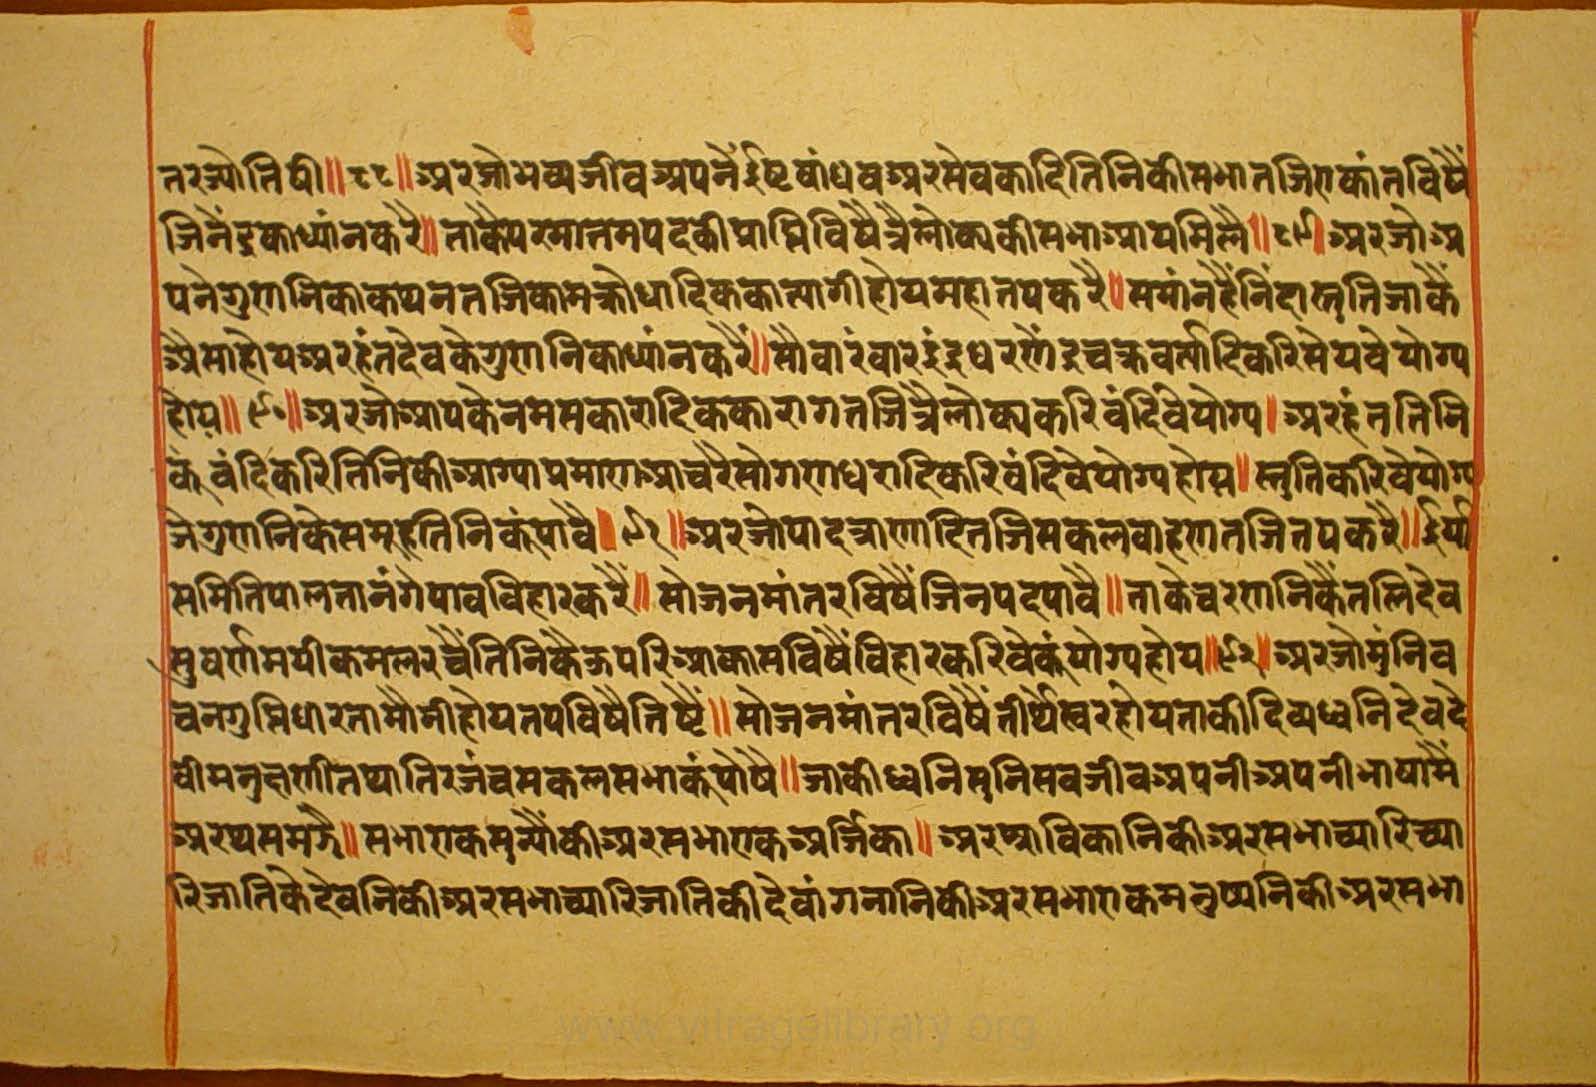 तरज्योतिषी॥८८॥अरजोभव्यजीवअपनैंईष्टबांधवअरसेवकादितिनिकीसभातजिएकांतविषैं
जिनेंद्रकाध्यांनकरै॥ताकैपरमात्तमपदकीप्राप्तिविषैत्रैलोक्यकीसभाआयमिलै॥८९॥अरजोअ
पनेगुणनिकाकथनतजिकामक्रोधादिककात्यागीहोयमहातपकरै॥समांनहैंनिंदास्तुतिजाकैं
अैसाहोयअरहंतदेवकेगुणनिकाध्यांनकरैं॥सौवारंवारइंद्रधरणेंद्रचक्रवर्त्तादिकरिसेयवेयोग्य
होय॥९०॥अरजोआपकेनमसकारादिककारागतजित्रैलोक्यकरिवंदिवेयोग्य।अरहंततिनि
कूंवंदिकरितिनिकीआग्याप्रमाणआचरैसोगणधरादिकरिवंदिवेयोग्यहोय॥स्तुतिकरिवेयोग्य
जेगुणनिकेसमूहतिनिकूंपावै॥९१॥अरजोपादत्राणादितजिसकलवाहणतजितपकरै॥ईर्या
समितिपालतानंगेपावविहारकरैं॥सोजनमांतरविषैंजिनपदपावै॥ताकेचरणनिकैंतलिदेव
सुवर्णमयीकमलरचैंतिनिकैऊपरिआकासविषैंविहारकरिवेकूंयोग्यहोय॥९२॥अरजोमुंनिव
चनगुप्तिधारतामौंनीहोयतपविषैतिष्टैं॥सोजनमांतरविषैंतीर्थैस्वरहोयताकीदिव्यध्वनिदेवदे
वीमनुष्यणीतथातिरजंवसकलसभाकूंपोषै॥जाकीध्वनिसुनिसवजीवअपनीअपनीभाषामैं
अरथसमझै॥सभाएकमुन्यौंकीअरसभाएकअर्जिका॥अरश्राविकानिकीअरसभाच्यारिच्या
रिजातिकेदेवनिकीअरसभाच्यारिजातिकीदेवांगनानिकीअरसभाएकमनुष्यनिकीअरसभा
www.vitragelibrary.org